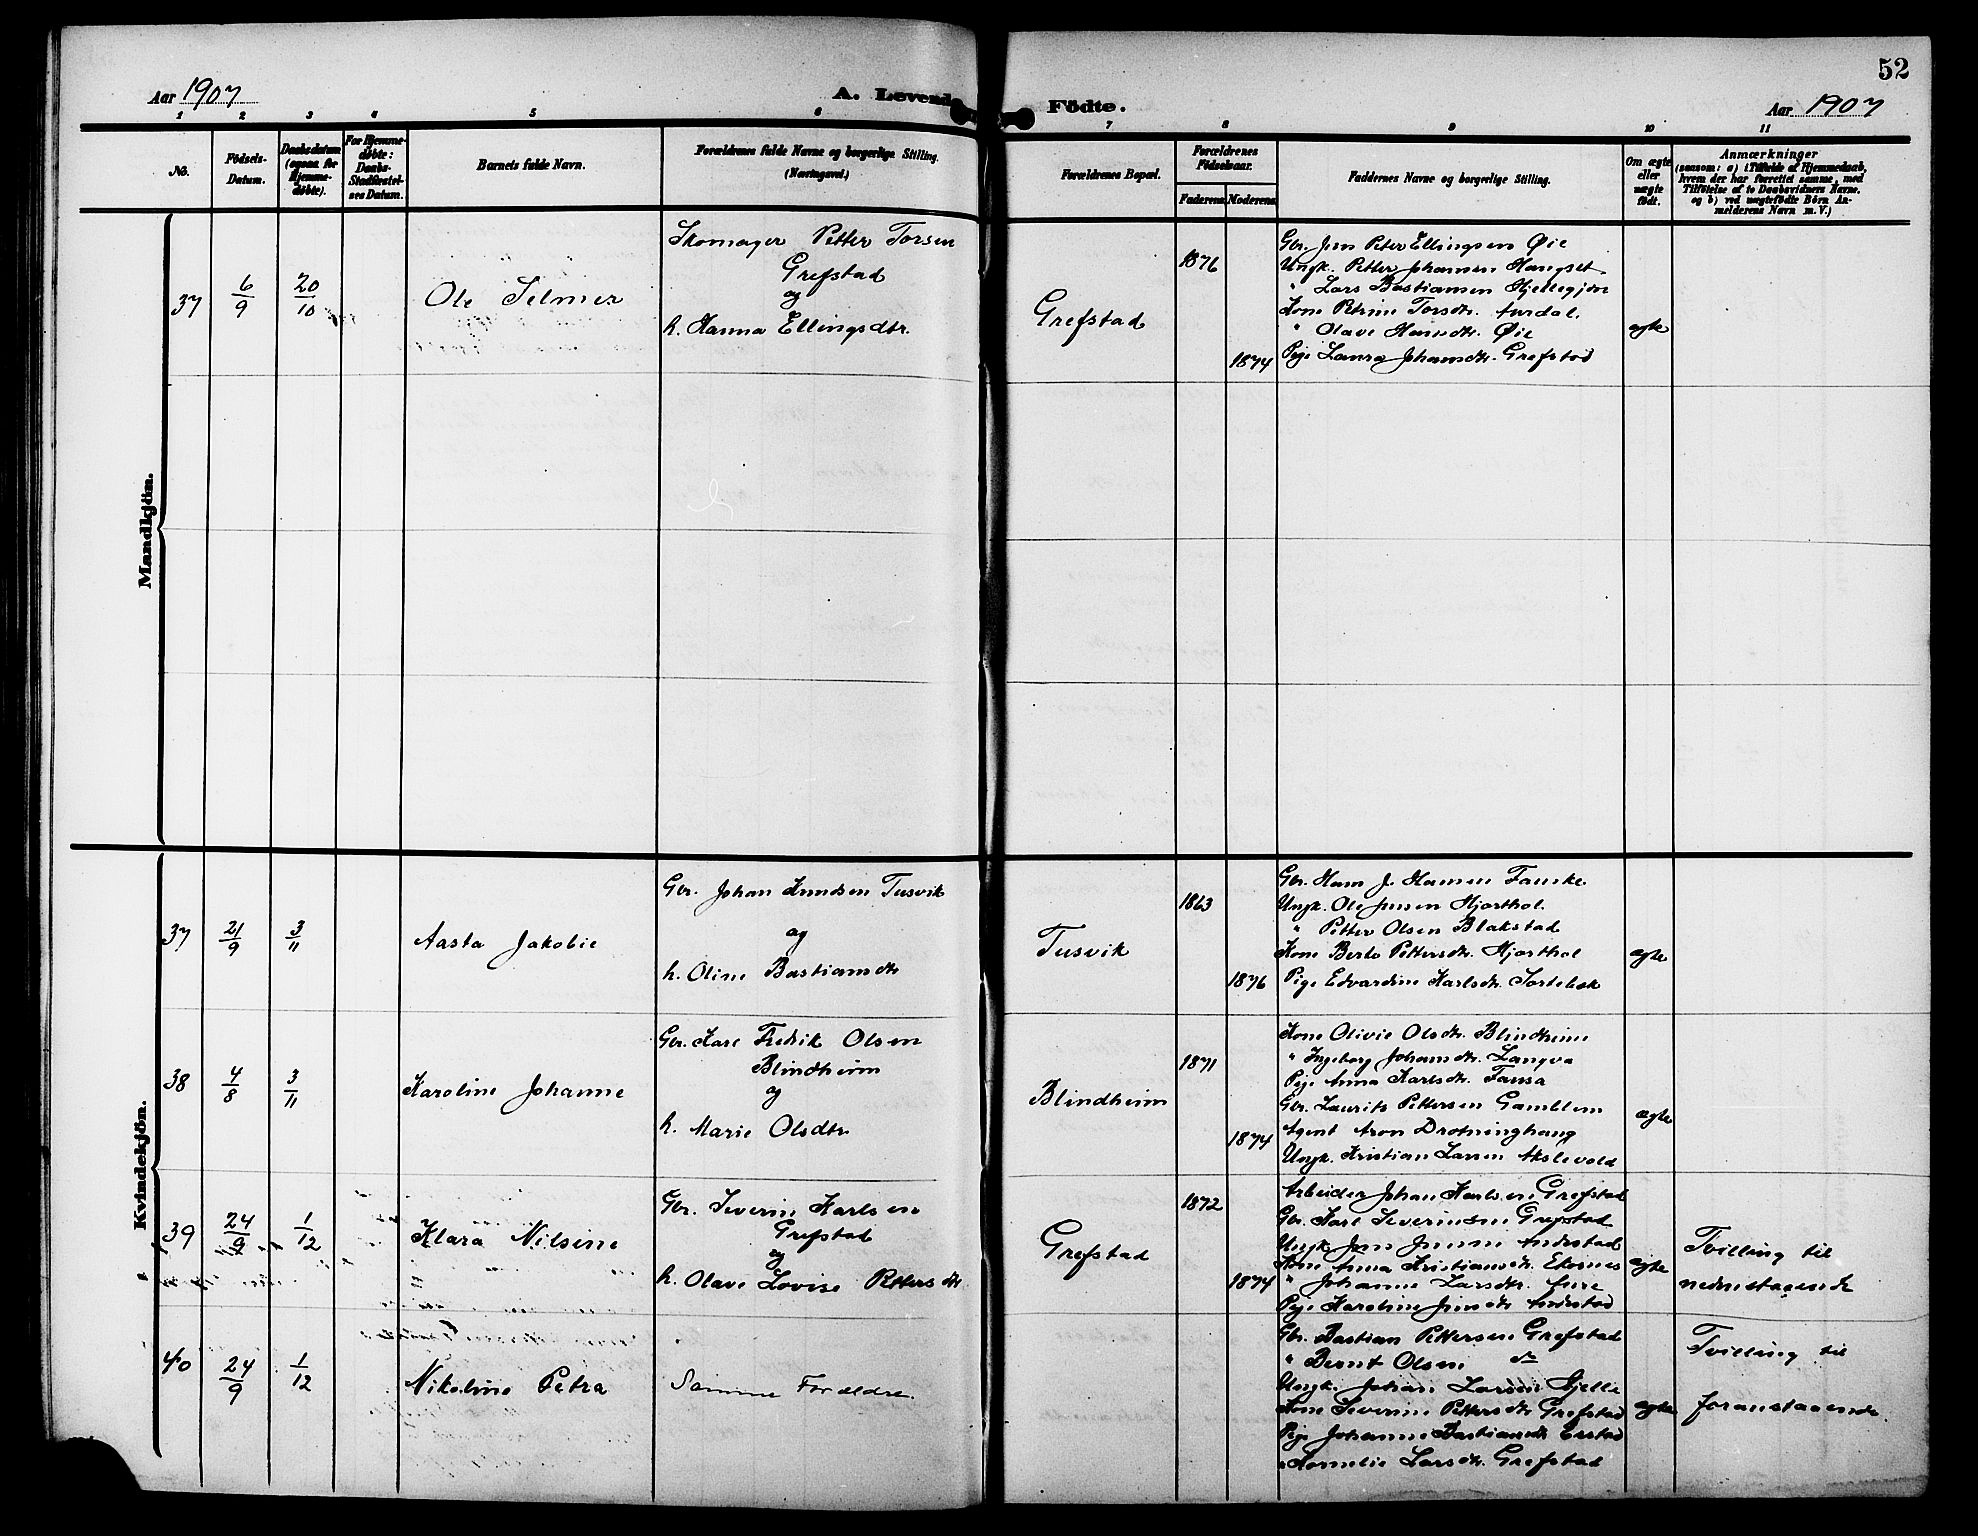 52
Aar 1907
A. Levende Födte.
Aar 1907
1 2 3 4 5 6 7 8 9 10 11
No.
Födsels-Datum.
Daabsdatum (ogsaa for Hjemmedøbte).
For Hjemmedøbte: Daabs-Stadfæstelses Datum.
Barnets fulde Navn.
Forældrenes fulde Navne og borgerlige Stilling. (Næringsvei.)
Forældrenes Bopæl.
Forældrenes Födselsaar.
Faderens. Moderens.
Faddernes Navne og borgerlige Stilling.
Om ægte eller uægte født.
Anmærkninger
(saasom: a) i Tilfælde af Hjemmedaab, hvem der har forrettet samme, med Tilföielse af to Daabsvidners Navne, og b) ved uægtefødte Börn Anmelderens Navn m. V.)
Mandkjön.
37
6/9
20/10
Ole Selmer
Skomager Petter Torsen
Grefstad
og
h. Hanna Ellingsdtr.
Grefstad
1876
1874
Gbr. Jens Peter Ellingsen Øie
Ungk. Petter Johansen Hangset
" Lars Bastiansen Hjellegjen
Kone Petrine Torsdtr. Aurdal.
" Olave Hansdtr. Øie
Pige Laura Johansdtr. Grefstad
ægte
Kvindekjön.
37
21/9
3/11
Aasta Jakobie
Gbr. Johan Knudsen Tusvik
og
h. Oline Bastiansdtr
Tusvik
1863
1876
Gbr. Hans J. Hansen Fauske
Ungk. Ole Jensen Hjorthol.
" Petter Olsen Blakstad
Kone Berte Pettersdtr. Hjorthol
Pige Edvardine Karlsdtr. Sortebek
ægte
38
4/8
3/11
Karoline Johanne
Gbr. Karl Fredrik Olsen
Blindheim
og
h. Marie Olsdtr
Blindheim
1871
1874
Kone Olivie Olsdtr. Blindheim
" Ingeborg Johansdtr. Langva
Pige Anna Karlsdtr. Fausa
Gbr. Laurits Pettersen Gamblem
Agent Aron Drotninghaug
Ungk. Kristian Larsen Akslevold
ægte
39
24/9
1/12
Klara Nilsine
Gbr. Severin Karlsen
Grefstad
og
h. Olave Lovise Pettersdtr
Grefstad
1872
1874
Arbeider Johan Karlsen Grefstad
Gbr. Karl Severinsen Grefstad
Ungk. Jens Jensen Andestad
Kone Anna Kristiansdtr. Ekornes
" Johanne Larsdtr. Aure
Pige Karoline Jensdtr Andestad
ægte
Tvilling til
nedenstaaende
40
24/9
1/12
Nikoline Petra
Samme Forældre.
Gbr. Bastian Pettersen Grefstad
" Bernt Olsen do
Ungk. Johan Larsen Hjelle
Kone Severine Pettersdtr Grefstad
Pige Johanne Bastiansdtr Erstad
" Kornelie Larsdtr. Grefstad
ægte
Tvilling til
foranstaaende